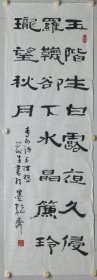 玉階生白露夜久侵
羅襪卻下水晶簾玲
瓏望秋月
李白詩玉階怨